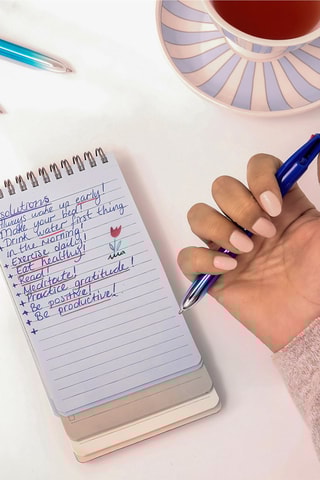 solutions
Always wake up early!
Make your bed!
+ Drink water first thing
in the morning!
+ Exercise daily!
+ Eat healthy!
+ Read!
+ Meditate!
+ Practice gratitude!
+ Be positive!
+ Be productive!
+